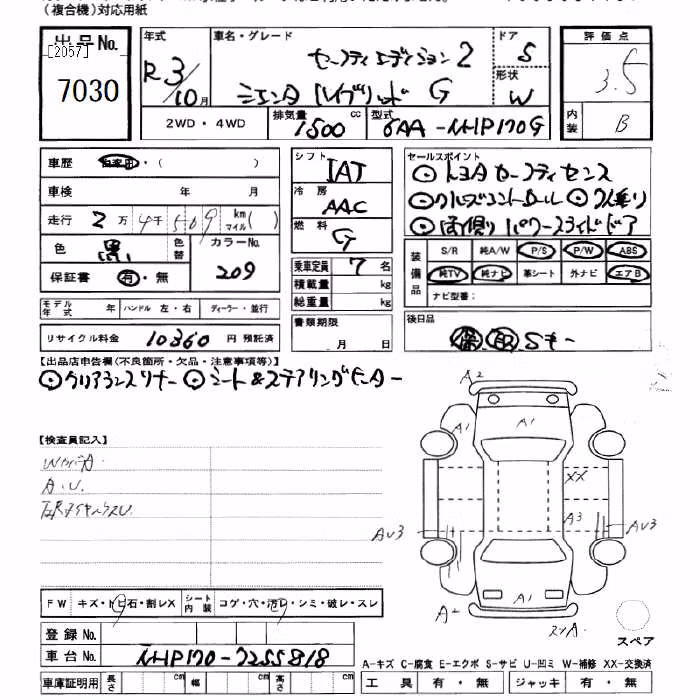 (複合機)対応用紙
出品No.
[2057]
7030
年式
R 3/10月
車名・グレード
セーフティエディション2
シエンタ ハイブリッド G
ドア
5
形状
W
評価点
3.5
内装
B
2WD・4WD
排気量 1500 cc
型式 6AA-NHP170G
車歴 自家用・( )
車検 年 月
走行 2万4千509 km マイル( )
色 黒 色替
カラーNo. 209
保証書 有・無
シフト IAT
冷房 AAC
燃料 G
乗車定員 7 名
積載量 kg
総重量 kg
セールスポイント
⊙トヨタセーフティセンス
⊙クルーズコントロール ⊙7人乗り
⊙両側パワースライドドア
装備品
S/R 純A/W P/S P/W ABS
純TV 純ナビ 革シート 外ナビ エアB
ナビ型番:
モデル年式 年 ハンドル 左・右 ディーラー・並行
リサイクル料金 10360 円 預託済
書類期限 月 日
後日品
保 取 Sキー
【出品店申告欄(不良箇所・欠品・注意事項等)】
⊙クリアランスソナー ⊙シート&ステアリングヒーター
【検査員記入】
WカバーA
A.U.
A2
A1
A1
XX
A3
AU3
AU3
A2
A1
スリA.
スペア
FW キズ・トビ石・割レX
シート内装 コゲ・穴・汚レ・シミ・破レ・スレ
登録No.
車台No. NHP170-7255818
A-キズ C-腐食 E-エクボ S-サビ U-凹ミ W-補修 XX-交換済
車庫証明用 長さ cm 幅 cm 高さ cm
工具 有・無 ジャッキ 有・無